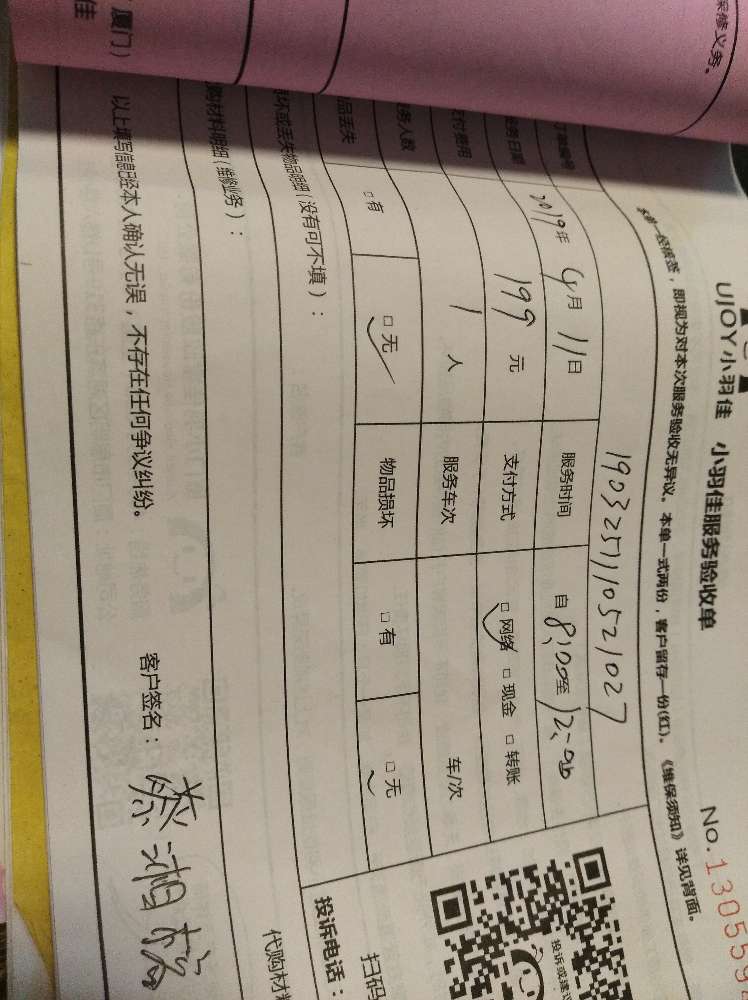 保修义务。
厦门）
佳
UJOY小羽佳 小羽佳服务验收单
No.130559
本单一经据签，即视为对本次服务验收无异议。本单一式两份，客户留存一份(红)。《维保须知》详见背面。
订单编号 1903251110521027
服务日期 2019年 4月 11日 服务时间 自 8:00至 12:00
支付费用 199 元 支付方式 □ 网络 □ 现金 □ 转账
服务人数 1 人 服务车次 车/次
品丢失 □ 有 □ 无 物品损坏 □ 有 □ 无
损坏或丢失物品明细(没有可不填)：
投诉或建
扫码
投诉电话：
购材料明细(维修业务)：
代购材料
以上填写信息经本人确认无误，不存在任何争议纠纷。
客户签名：